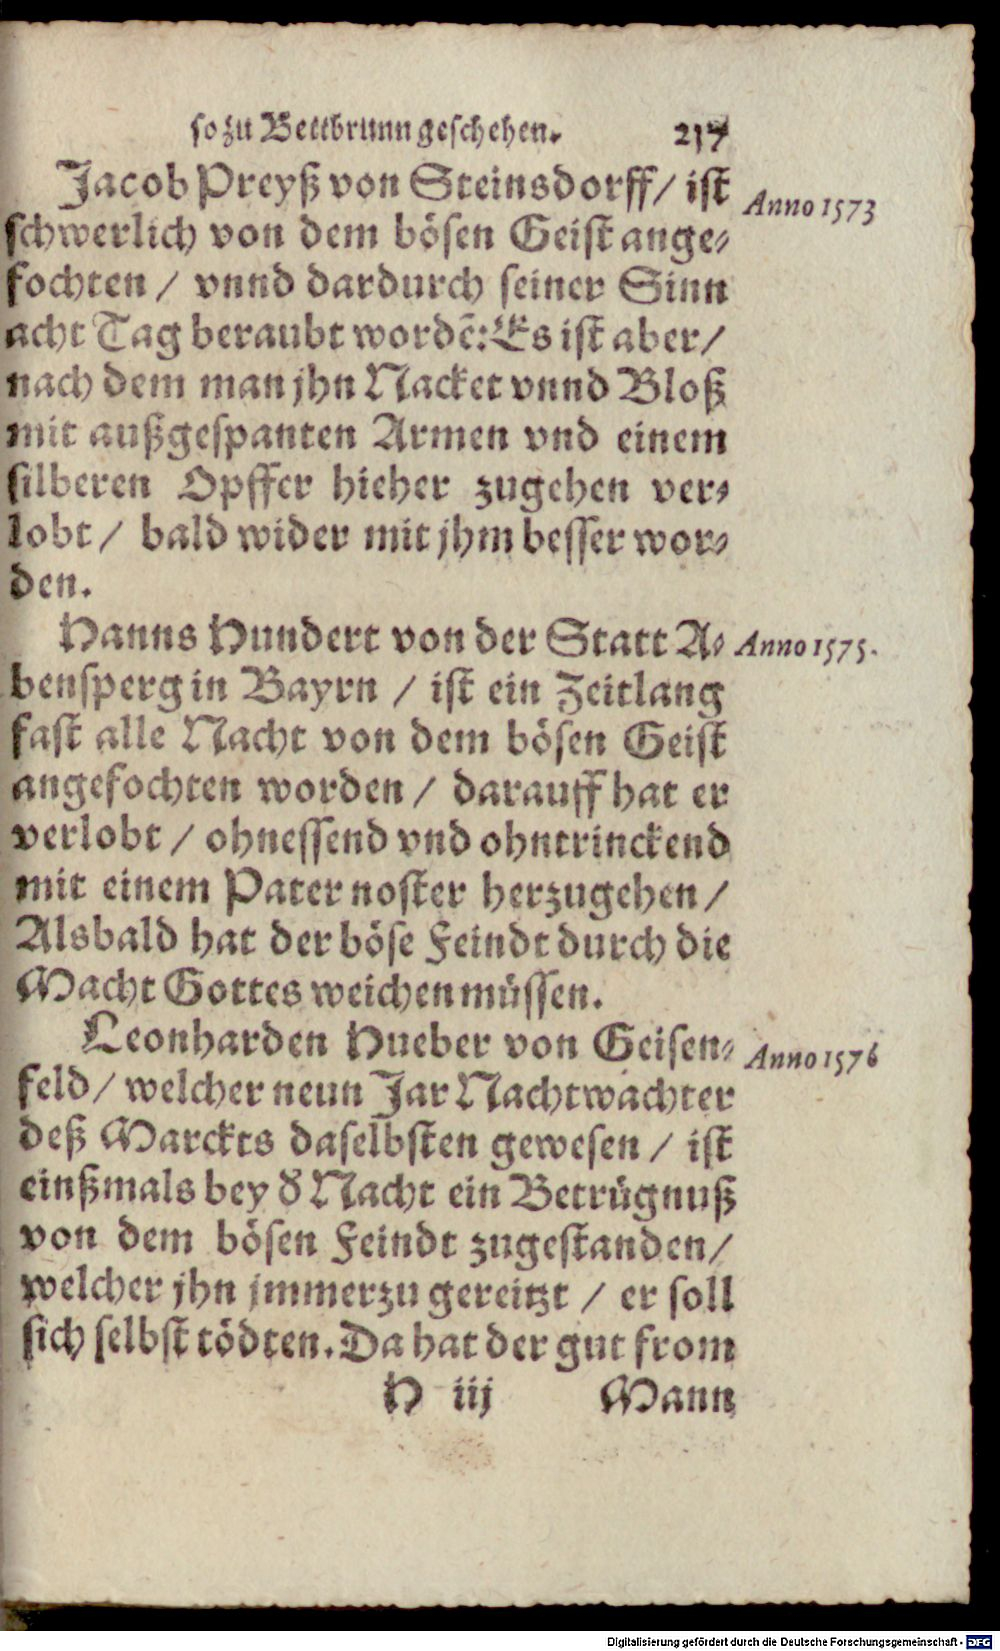 so zu Bettbrunn geschehen. 217
Jacob Preyß von Steinsdorff/ ist
Anno 1573
schwerlich von dem bösen Geist ange-
fochten / vnnd dardurch seiner Sinn
acht Tag beraubt wordē: Es ist aber/
nach dem man jhn Nacket vnnd Bloß
mit außgespanten Armen vnd einem
silberen Opffer hieher zugehen ver-
lobt / bald wider mit jhm besser wor-
den.
Hanns Hundert von der Statt A-
Anno 1575.
bensperg in Bayrn / ist ein Zeitlang
fast alle Nacht von dem bösen Geist
angefochten worden / darauff hat er
verlobt / ohnessend vnd ohntrinckend
mit einem Pater noster herzugehen /
Alsbald hat der böse Feindt durch die
Macht Gottes weichen müssen.
Leonharden Hueber von Geisen-
Anno 1576
feld/ welcher neun Jar Nachtwachter
deß Marckts daselbsten gewesen / ist
einßmals bey d Nacht ein Betrügnuß
von dem bösen Feindt zugestanden/
welcher jhn jmmerzu gereitzt / er soll
sich selbst tödten. Da hat der gut from
H iij Mann
Digitalisierung gefördert durch die Deutsche Forschungsgemeinschaft - DFG